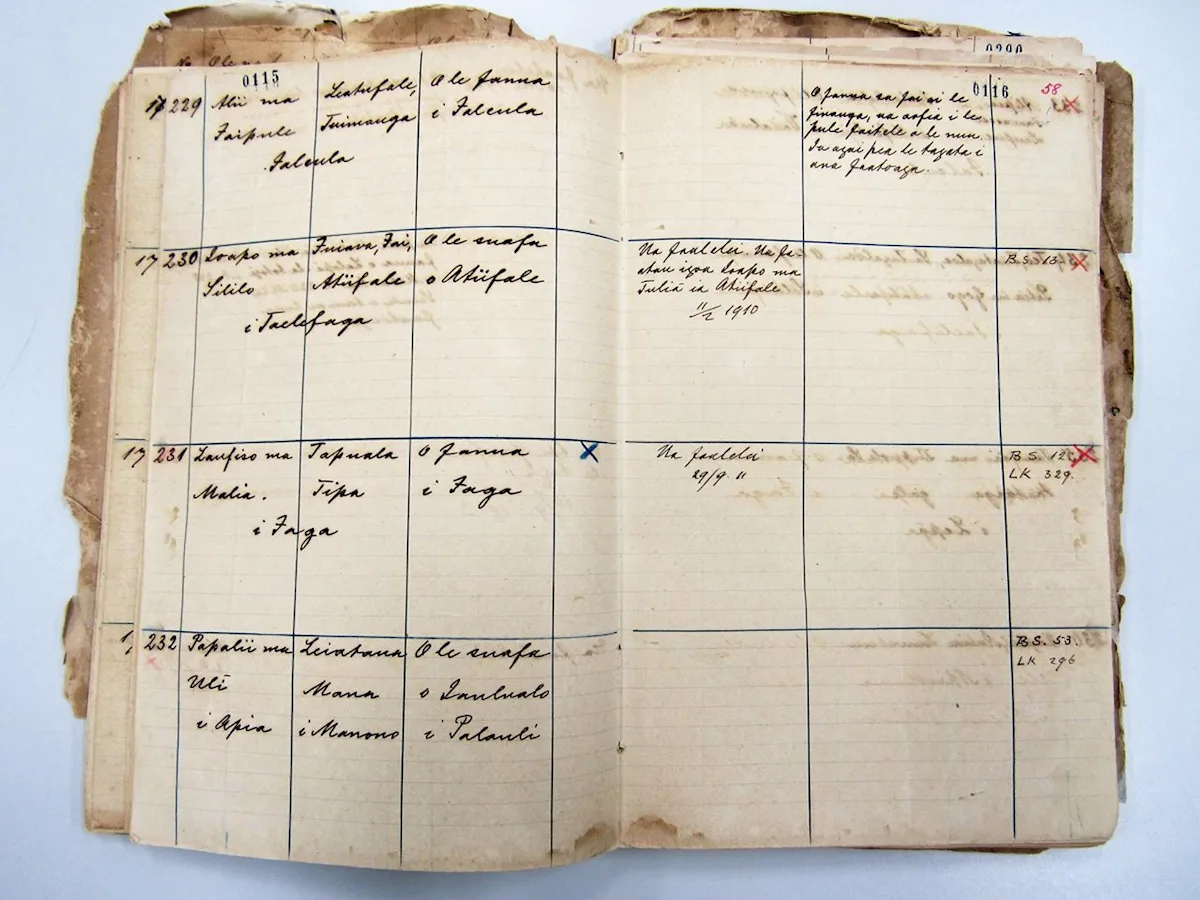 0115
17 229
Alii ma
Faipule
Faleula
Leatufale,
Tuimauga
O le fanua
i Faleula
0116
58
O fanua sa fai ai le
finauga, ua aofia i le
pule faitele a le nuu
i ana faatoaga.
17 230
Loapo ma
Sililo
i Taelefaga
Fuiava, Fai,
Atiifale
O le suafa
o Atiifale
Ua faalelei. Ua fa-
atau igoa Loapo ma
Tuliā ia Atiifale
11/2 1910
B.S. 13.
17 231
Laufiso ma
Malia.
i Faga
Tapuala
Tipa
O fanua
i Faga
Ua faalelei
29/9 "
B.S. 12
LK 329.
232
Papalii ma
Uli
i Apia
Leiataua
Mana
i Manono
O le suafa
i Palauli
B.S. 53.
LK 296